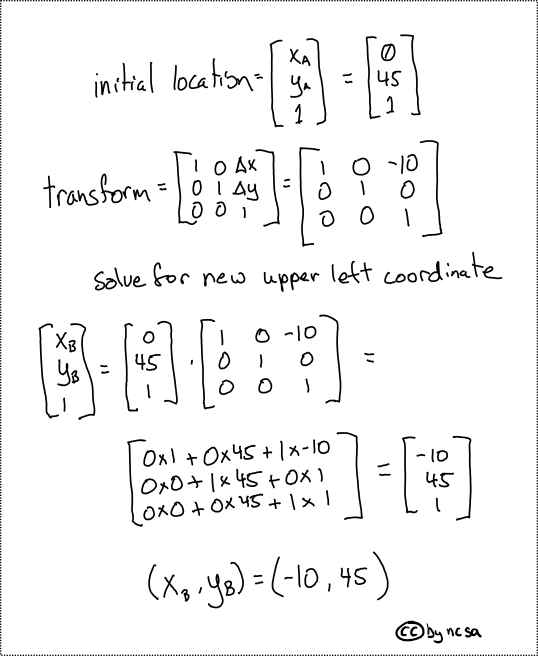 initial location = [x_A y_A 1] = [0 45 1]
transform = [1 0 Δx; 0 1 Δy; 0 0 1] = [1 0 -10; 0 1 0; 0 0 1]
solve for new upper left coordinate
[x_B y_B 1] = [0 45 1] · [1 0 -10; 0 1 0; 0 0 1] =
[0x1 + 0x45 + 1x-10; 0x0 + 1x45 + 0x1; 0x0 + 0x45 + 1x1] = [-10 45 1]
(x_B, y_B) = (-10, 45)
cc by nc sa